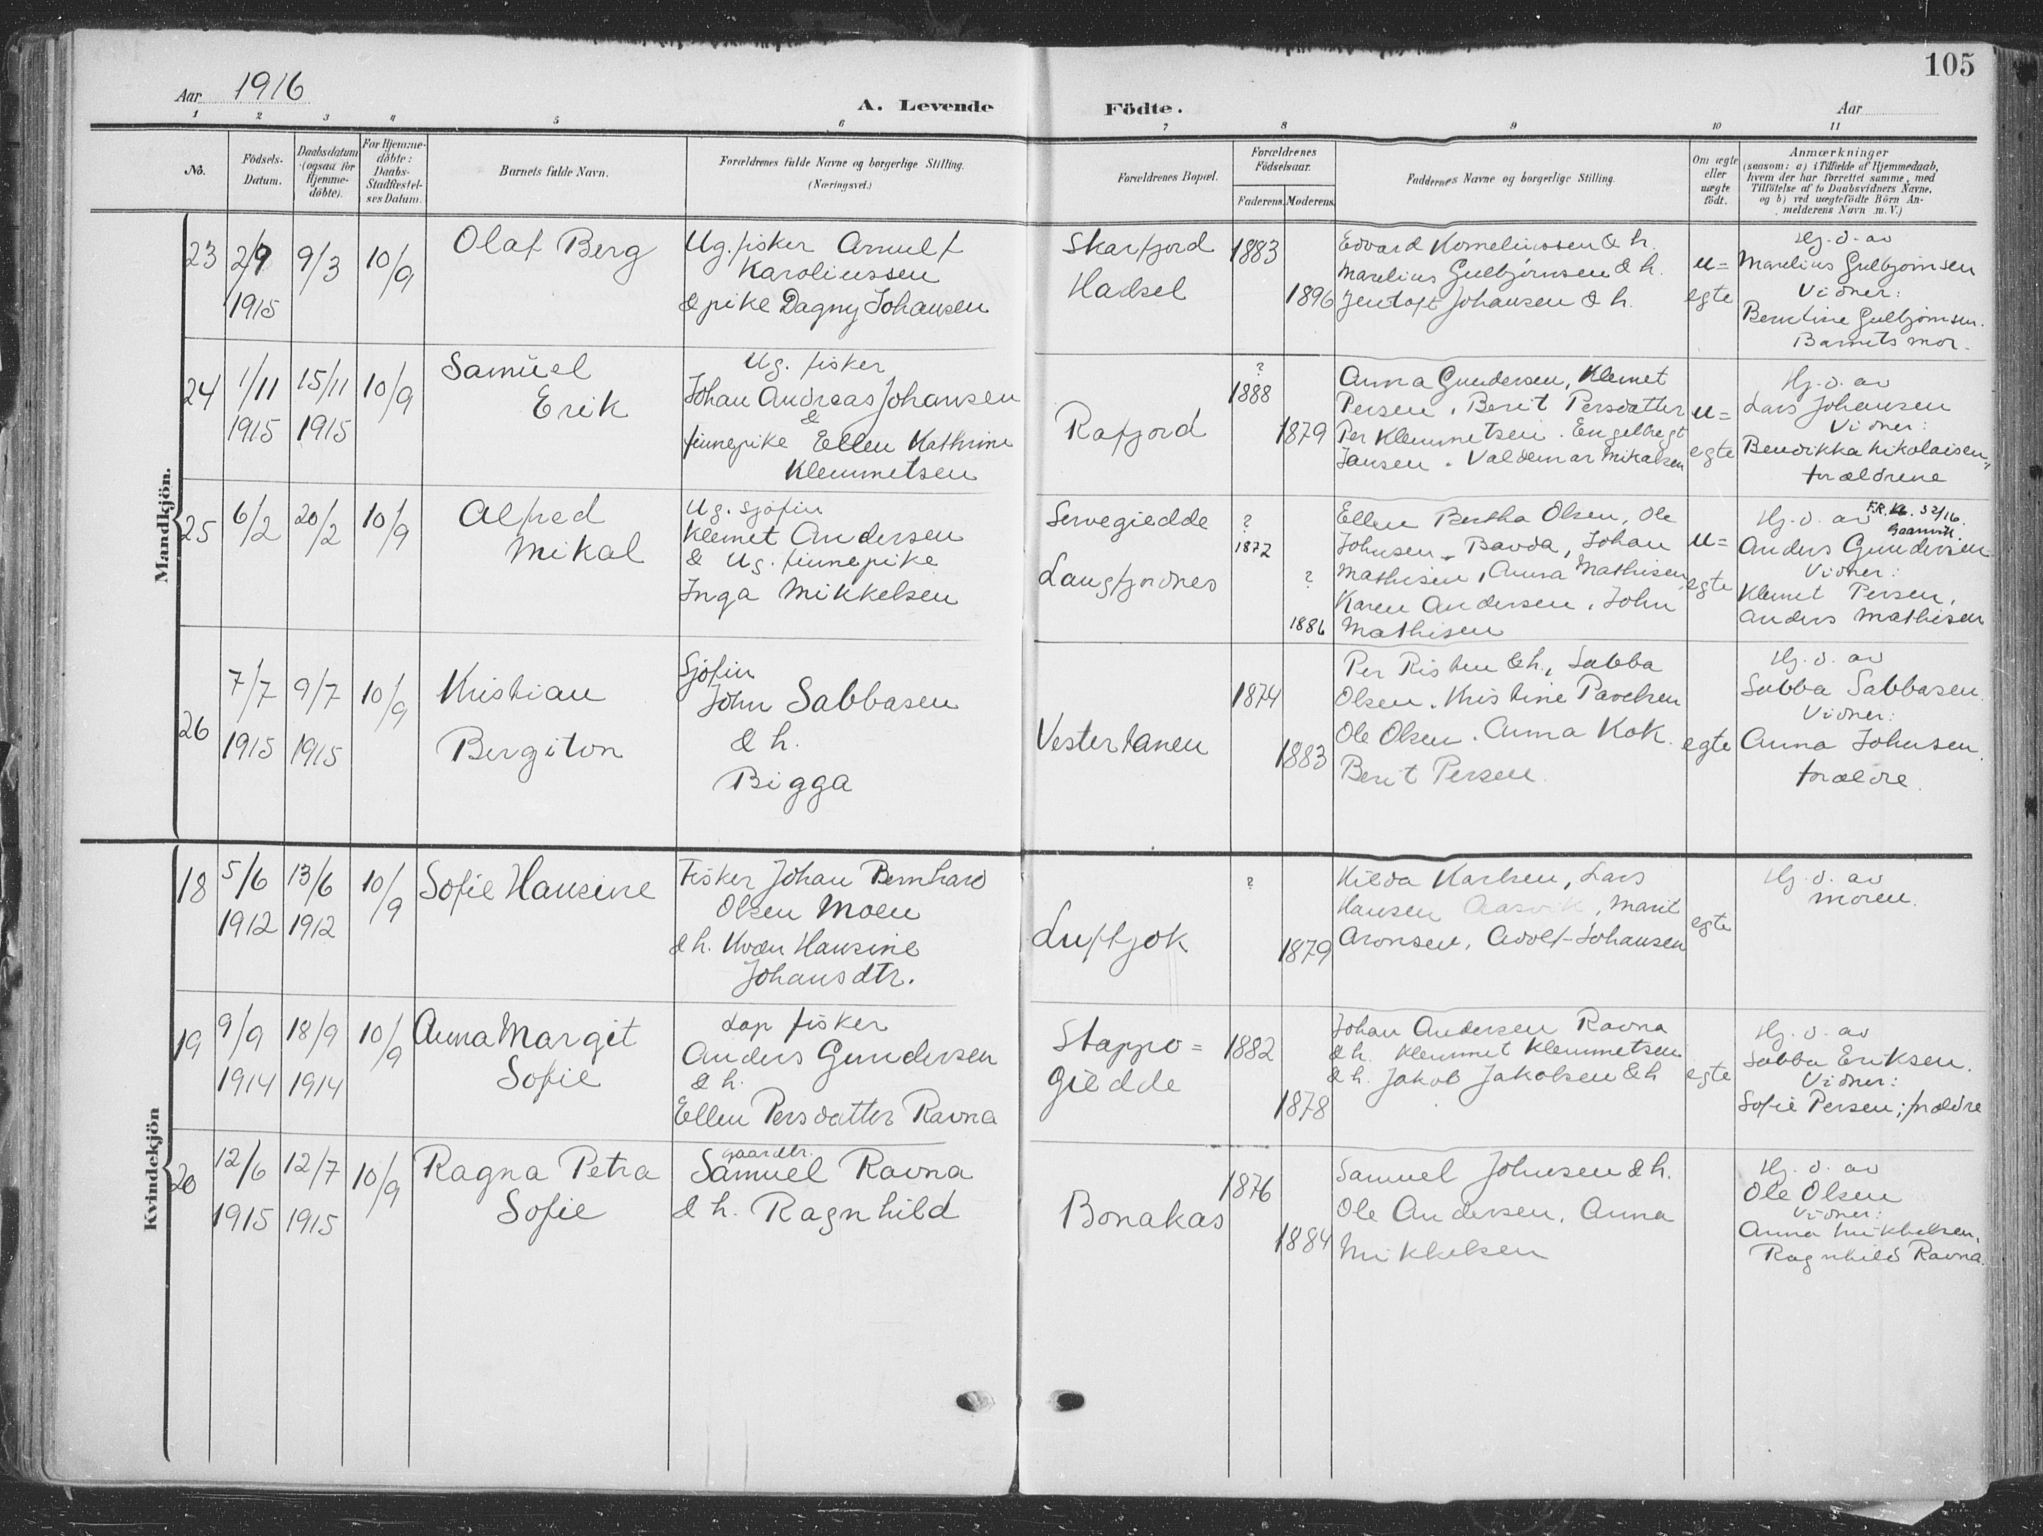 105
Aar 1916
A. Levende Födte.
Aar
1 2 3 4 5 6 7 8 9 10 11
No.
Födsels-
Datum.
Daabsdatum
(ogsaa for
Hjemme-
döbte).
For Hjemme-
döbte:
Daabs-
Stadfæstel-
ses Datum.
Barnets fulde Navn.
Forældrenes fulde Navne og borgerlige Stilling.
(Næringsvei.)
Forældrenes Bopæl.
Forældrenes
Födselsaar.
Faderens. Moderens.
Faddernes Navne og borgerlige Stilling.
Om ægte
eller
uægte
födt.
Anmærkninger
(saasom: a) i Tilfælde af Hjemmedaab,
hvem der har forrettet samme, med
Tilföielse af to Daabsvidners Navne,
og b) ved uægtefödte Börn An-
melderens Navn m. V.)
Mandkjön.
23
2/9
1915
9/3
10/9
Olaf Berg
Ug. fisker Arnulf
Karoliussen
& pike Dagny Johansen
Skarfjord
Hadsel
1883
1896
Edvard Korneliussen & h.
Marelius Gulbjørnsen & h.
Jentoft Johansen & h.
u=
egte
Hj. d. av
Marelius Gulbjørnsen
Vidner:
Berntine Gulbjørnsen.
Barnets mor.
24
1/11
1915
15/11
1915
10/9
Samuel
Erik
Ug. fisker
Johan Andreas Johansen
&
finnepike Ellen Kathrine
Klemmetsen
Rafjord
?
1888
1879
Anna Gundersen, Klemet
Persen, Berit Persdatter
Per Klemmetsen. Engelbregt
Jansen. Valdemar Mikalsen
u=
egte
Hj. d. av
Lars Johansen
Vidner:
Bendikka Nikolaisen,
forældrene
25
6/2
20/2
10/9
Alfred
Mikal
Ug. sjøfin
Klemet Andersen
& Ug. finnepike
Inga Mikkelsen
Servegiedde
Langfjordnes
?
1872
?
1886
Ellen Bertha Olsen, Ole
Johnsen Bavda, Johan
Mathisen, Anna Mathisen
Karen Andersen, John
Mathisen
u=
egte
Hj. d. av F.R. No. 32/16.
Gaarvik.
Anders Gundersen
Vidner:
Klemet Persen,
Anders Mathisen
26
7/7
1915
9/7
1915
10/9
Kristian
Bergiton
Sjøfin
John Sabbasen
& h.
Bigga
Vestertanen
1874
1883
Per Risten & h., Sabba
Olsen. Kristine Paoelsen
Ole Olsen. Anna Kok.
Berit Persen.
egte
Hj. d. av
Sabba Sabbasen.
Vidner:
Anna Johnsen.
forældre.
Kvindekjön
18
5/6
1912
13/6
1912
10/9
Sofie Hansine
Fisker Johan Bernhard
Olsen Moen
& h. Kvæn Hansine
Johansdtr.
Luftjok
?
1879
Hilda Karlsen, Lars
Hansen Aasvik, Marit
Aronsen, Adolf Johansen
egte
Hj. d. av
moren.
19
9/9
1914
18/9
1914
10/9
Anna Margit
Sofie
Lap fisker
Anders Gundersen
& h.
Ellen Persdatter Ravna
Stappo=
giedde
1882
1878
Johan Andersen Ravna
& h. Klemmet Klemmetsen
& h. Jakob Jakobsen & h
egte
Hj. d. av
Sabba Eriksen.
Vidner:
Sofie Persen; forældre
20
12/6
1915
12/7
1915
10/9
Ragna Petra
Sofie
gaardbr.
Samuel Ravna
& h. Ragnhild
Bonakas
1876
1884
Samuel Johnsen & h.
Ole Andersen. Anna
Mikkelsen
Hj. d. av
Ole Olsen
Vidner:
Anna Mikkelsen,
Ragnhild Ravna.